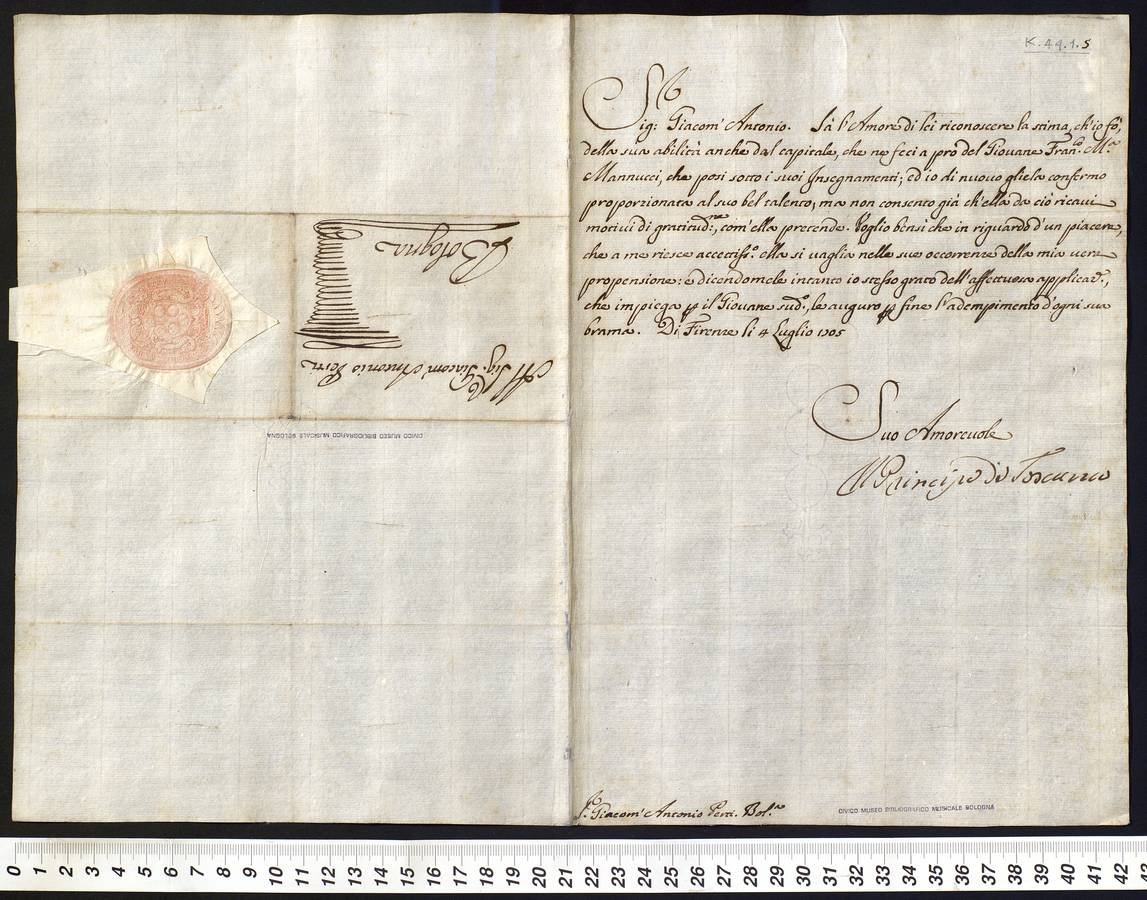 K.44.1.5
Sig: Giacom' Antonio. Sà l'Amore di lei riconoscere la stima, ch'io fò,
della sua abilità anche dal capitale, che ne feci a prò del Giovane Fran.co M.a
Mannucci, che posi sotto i suoi Insegnamenti; ed io di nuovo gliela confermo
proporzionata al suo bel talento; ma non consento già ch'ella da ciò ricavi
motivi di gratitud.ne, com'ella pretende. Voglio bensì che in riguardo d'un piacere,
che a me riesce accettiss.o ella si vaglia nelle sue occorrenze della mia vera
propensione: e dicendomele intanto io stesso grato dell'affettuosa applicaz.e,
che impiega p il Giovane sud.o, le auguro p fine l'adempimento d'ogni sua
brama. Di Firenze li 4 Luglio 1705
Suo Amorevole
Il Principe di Toscana
S.r Giacom' Antonio Perti. Bol.a
CIVICO MUSEO BIBLIOGRAFICO MUSICALE BOLOGNA
Al Sig. Giacom' Antonio Perti
Bologna
CIVICO MUSEO BIBLIOGRAFICO MUSICALE BOLOGNA
0 1 2 3 4 5 6 7 8 9 10 11 12 13 14 15 16 17 18 19 20 21 22 23 24 25 26 27 28 29 30 31 32 33 34 35 36 37 38 39 40 41 42 43